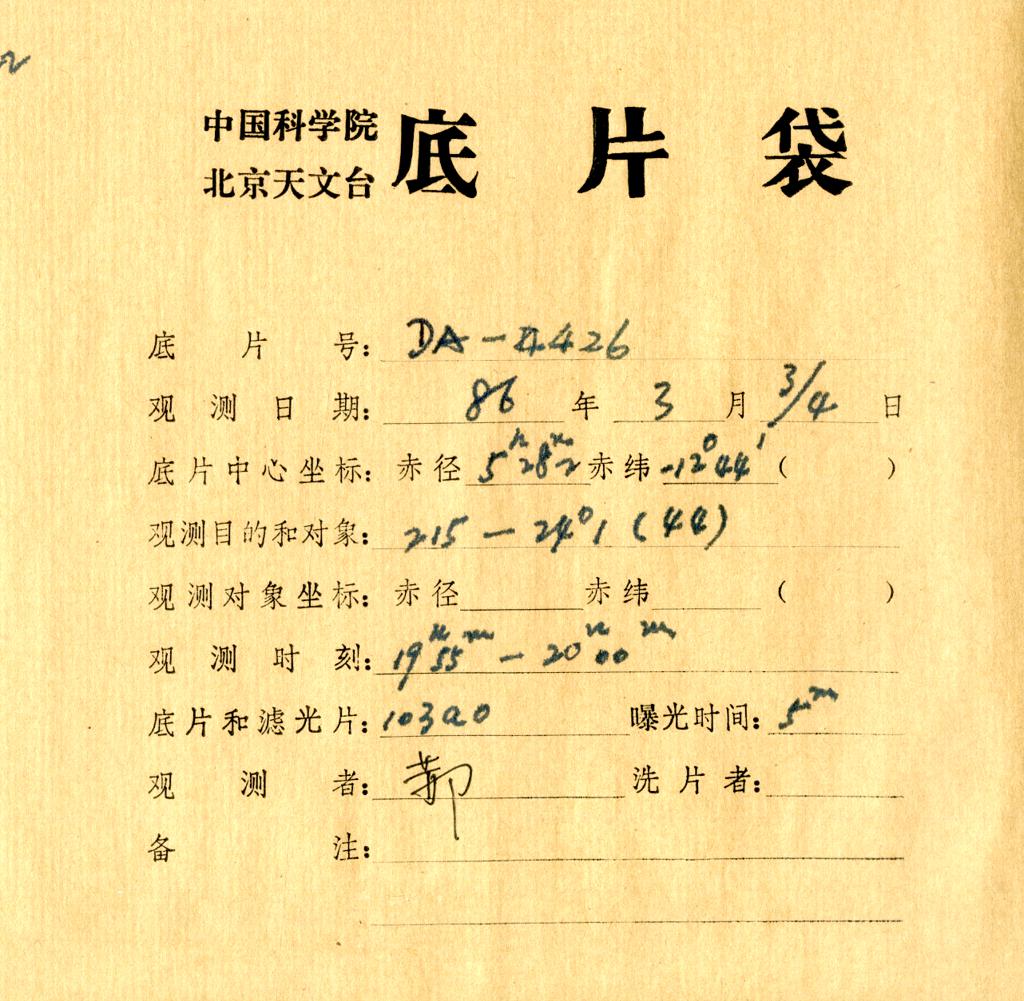 中国科学院
北京天文台
底片袋
底片号: DA-4426
观测日期: 86年3月3/4日
底片中心坐标: 赤径5ʰ28ᵐ2赤纬-12°44′( )
观测目的和对象: 215-24°1(44)
观测对象坐标: 赤径 赤纬 ( )
观测时刻: 19ʰ55ᵐ-20ʰ00ᵐ
底片和滤光片: 103aO 曝光时间: 5ᵐ
观测者: 洗片者:
备注: